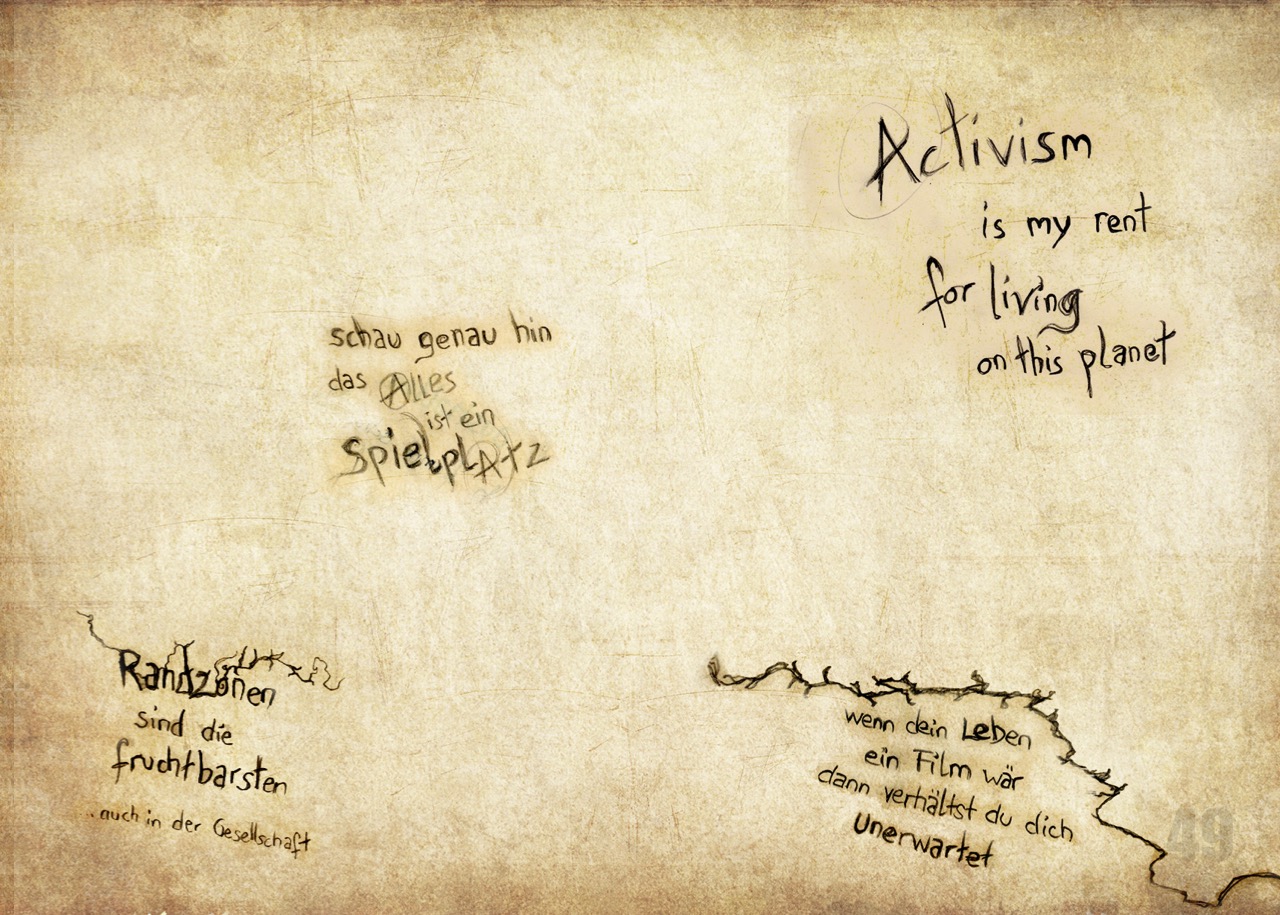 Activism
is my rent
for living
on this planet
schau genau hin
das Alles
ist ein
Spielplatz
Randzonen
sind die
fruchtbarsten
...auch in der Gesellschaft
wenn dein Leben
ein Film wär
dann verhältst du dich
Unerwartet
49